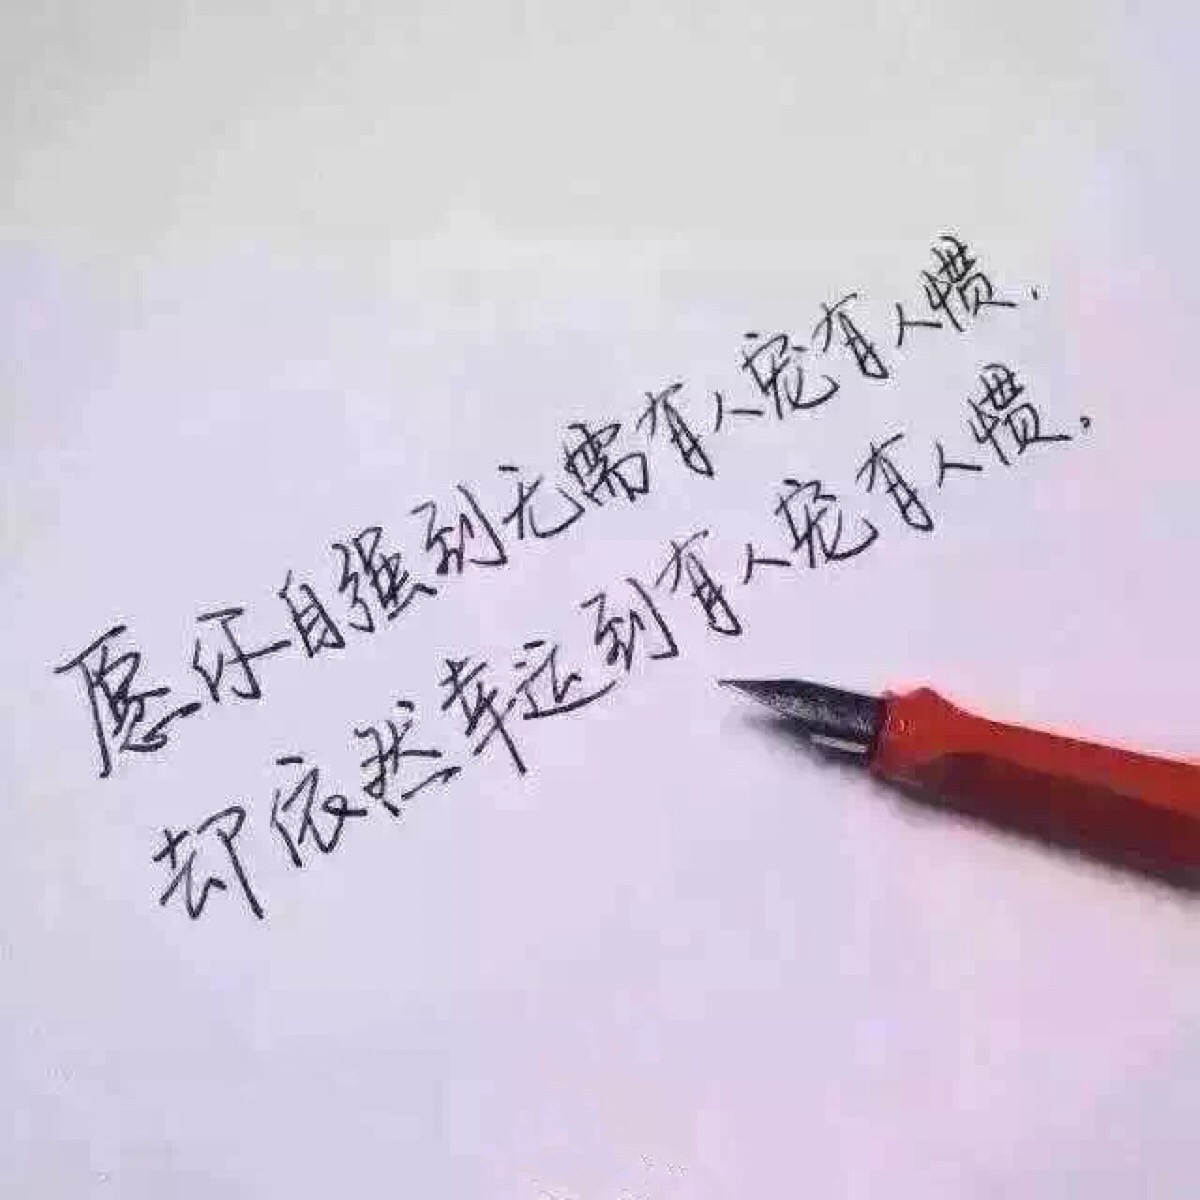 愿你自强到无需有人宠有人惯.
却依然幸运到有人宠有人惯。